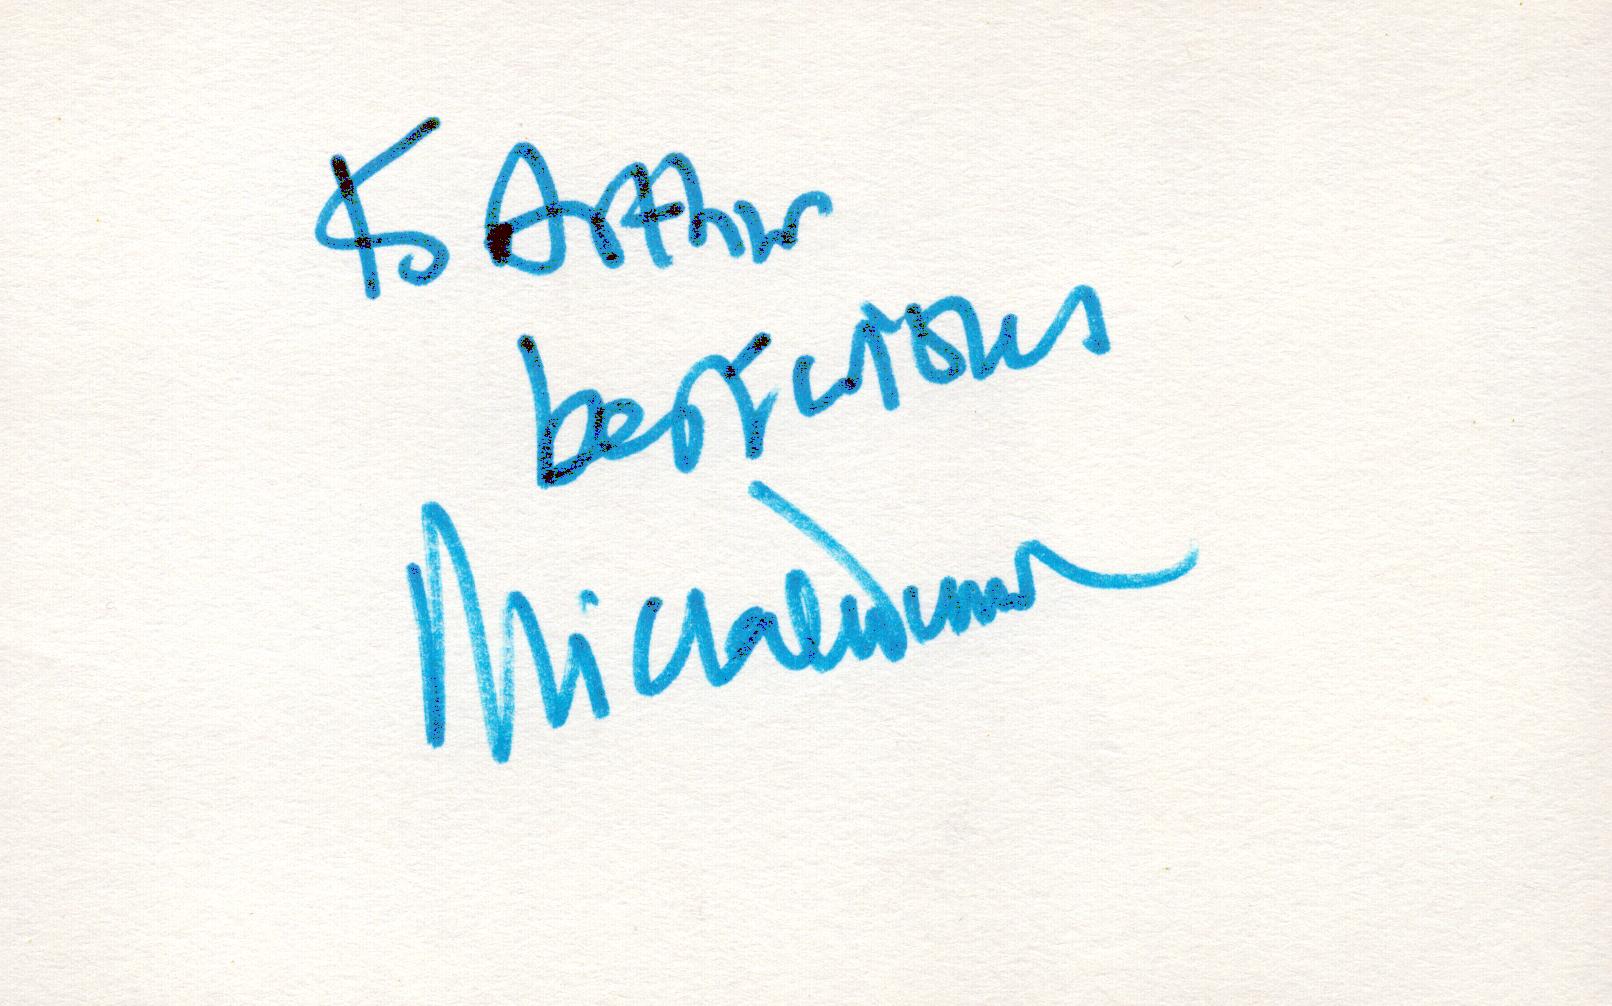 To Arthur
best wishes
Michael